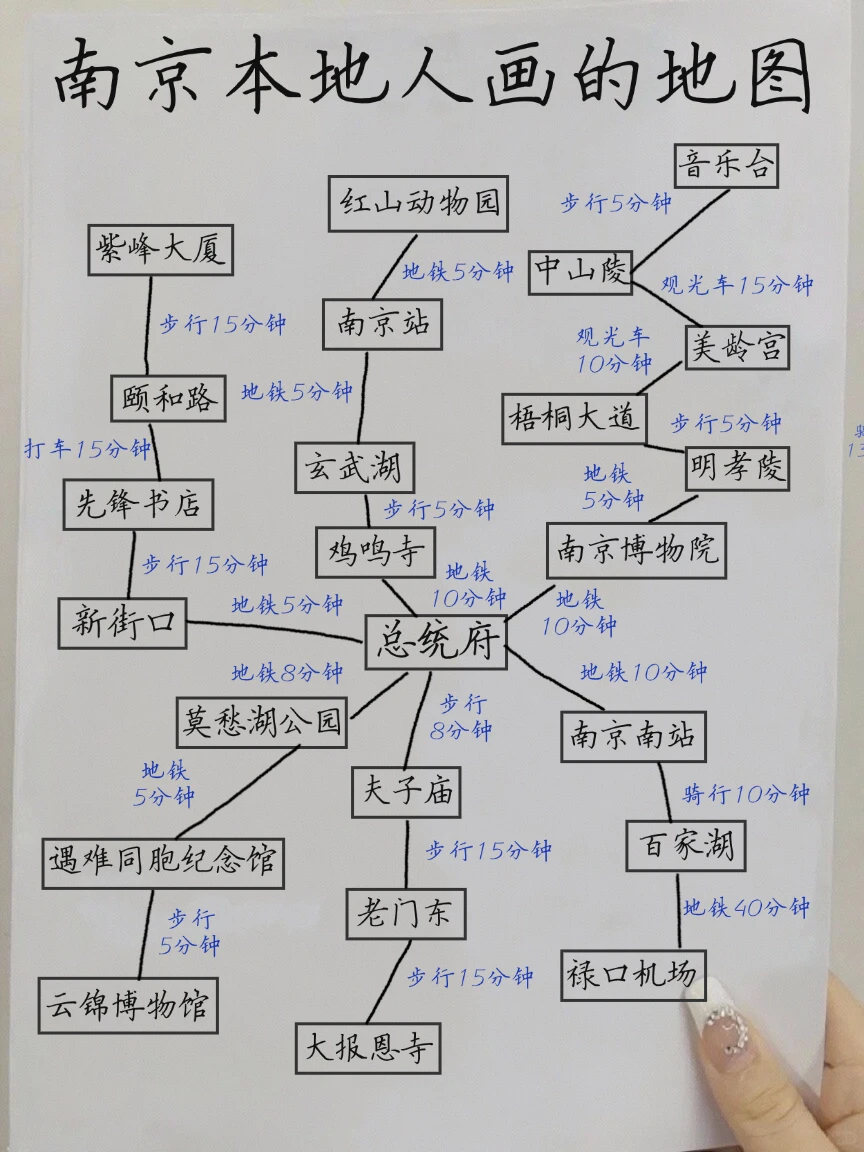 南京本地人画的地图
音乐台
步行5分钟
红山动物园
中山陵
紫峰大厦
地铁5分钟
观光车15分钟
步行15分钟
南京站
观光车
10分钟
美龄宫
颐和路
地铁5分钟
梧桐大道
步行5分钟
打车15分钟
玄武湖
明孝陵
地铁
5分钟
先锋书店
步行5分钟
鸡鸣寺
南京博物院
步行15分钟
地铁
10分钟
地铁
10分钟
新街口
地铁5分钟
总统府
地铁8分钟
地铁10分钟
莫愁湖公园
步行
8分钟
南京南站
地铁
5分钟
夫子庙
骑行10分钟
遇难同胞纪念馆
步行15分钟
百家湖
步行
5分钟
老门东
地铁40分钟
云锦博物馆
步行15分钟
禄口机场
大报恩寺